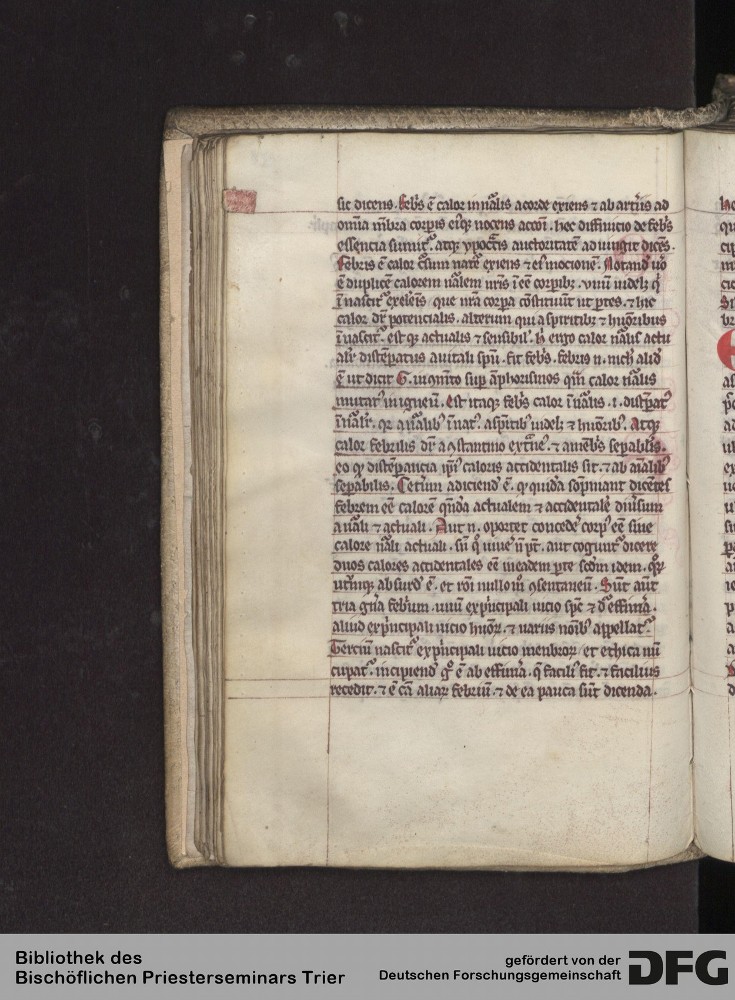 sic dicens. febͥs ē calor innͣalis acorde exiens ⁊ ab artͥis ad
omīa mēbra corpis eiꝰqꝫ nocens accōi. hec diffinitio de febͥs
essencia sumit᷑. atqꝫ ypocͣtis auctoritatē adiungit dicēs.
febris ē calor cͣsum natē exiens ⁊ ei inocionē. Notand͛ u͛o
ē duplicē calorem nͣalem nrīs īēē corpibꝫ. vnū uidelꝫ qͥ
ī nascit᷑ exeleīs que nrā corpa cōstituūt ut ptes. ⁊ hic
calor dr̄ potencialis. alterum qui a spiritibꝫ ⁊ huōribus
īnascit᷑. est qꝫ actualis ⁊ sensibil᷑. h͛ ergo calor nͣalis actu
alr̄ distēpatus auitali spū. fit febͥs. febris n. nich͛ aliđ
ē ut dicit G. in qͥnto sup āphorismos qͣm calor nͣalis
mutat᷑ in igneū. est itaqꝫ febͥs calor īnͣalis .i. distēpat᷑
īnͣalr̄. qꝛ a nͣalibꝰ īnat᷑. aspͥritibꝰ uidelꝫ ⁊ huōribꝰ. Atqꝫ
calor febrilis dr̄ a ꝯstantino extͣne᷑. ⁊ amēbͥs sepablis.
eo ꝙ distēpancia ipͥi᷑ caloris accidentalis sit. ⁊ ab aīalibꝰ
sepabilis. Cetͥum adiciend͛ ē. ꝙ quidā sōpniant dicētes
febrem eē calorē qͥnda actualem ⁊ accidentalē diuͥsum
a nͣali ⁊ actuali. Aut n. oportet concedē corpꝰ eē sine
calore nͣali actuali. sn̄ qͦ uiuē n̄ pt̄. aut cogunt᷑ dicere
duos calores accidentales eē ineadem pte scđm idem. qͦꝝ
utͣmqꝫ absurd͛ ē. et rōi nullo m̄ ꝯsentaneū. Sunt aūt
tria gn̄a febͥum. vnū expͥncipali uicio spē ⁊ dͬ effimͣa.
aliud expͥncipali uicio huōꝝ. ⁊ uariis noībꝰ appellat᷑.
Tercium nascit᷑ expͥncipali uicio menbroꝝ et ethica nū
cupat᷑. incipiend͛ gͦ ē ab effimͣa. q̄ facili᷑ fit. ⁊ facilius
recedit. ⁊ ē cā aliaꝝ febriū. ⁊ de ea pauca sūt dicenda.
Bibliothek des
Bischöflichen Priesterseminars Trier
gefördert von der
Deutschen Forschungsgemeinschaft
DFG